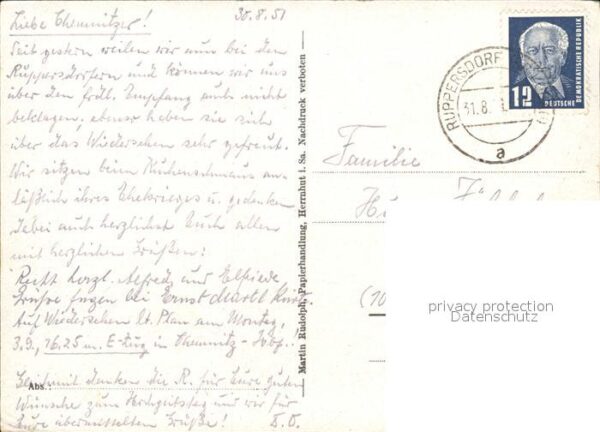 30.8.51
Liebe Chemnitzer!
Seit gestern weilen wir nun bei den
Ruppersdorfern und können wir uns
über den frdl. Empfang auch nicht
beklagen, ebenso haben sie sich
über das Wiedersehen sehr gefreut.
Wir sitzen beim Kuchenschmaus an-
läßlich ihres u. gedenken
dabei auch herzlichst Euch allen
mit herzlichen Grüßen:
Recht herzl. Alfred und Elfriede
Grüße fügen bei Ernst
Auf Wiedersehen lt. Plan am Montag,
3.9., 16.25 m. E-Zug in Chemnitz-Hbf.
Abs.
Gleichzeitig danken die R. für Eure guten
Wünsche zum Hochzeitstag und wir für
Eure übermittelten Grüße! D.O.
Martin Rudolph, Papierhandlung, Herrnhut i. Sa. Nachdruck verboten
RUPPERSDORF
31.8.
a
12
DEUTSCHE
DEMOKRATISCHE REPUBLIK
Familie
(10
privacy protection
Datenschutz